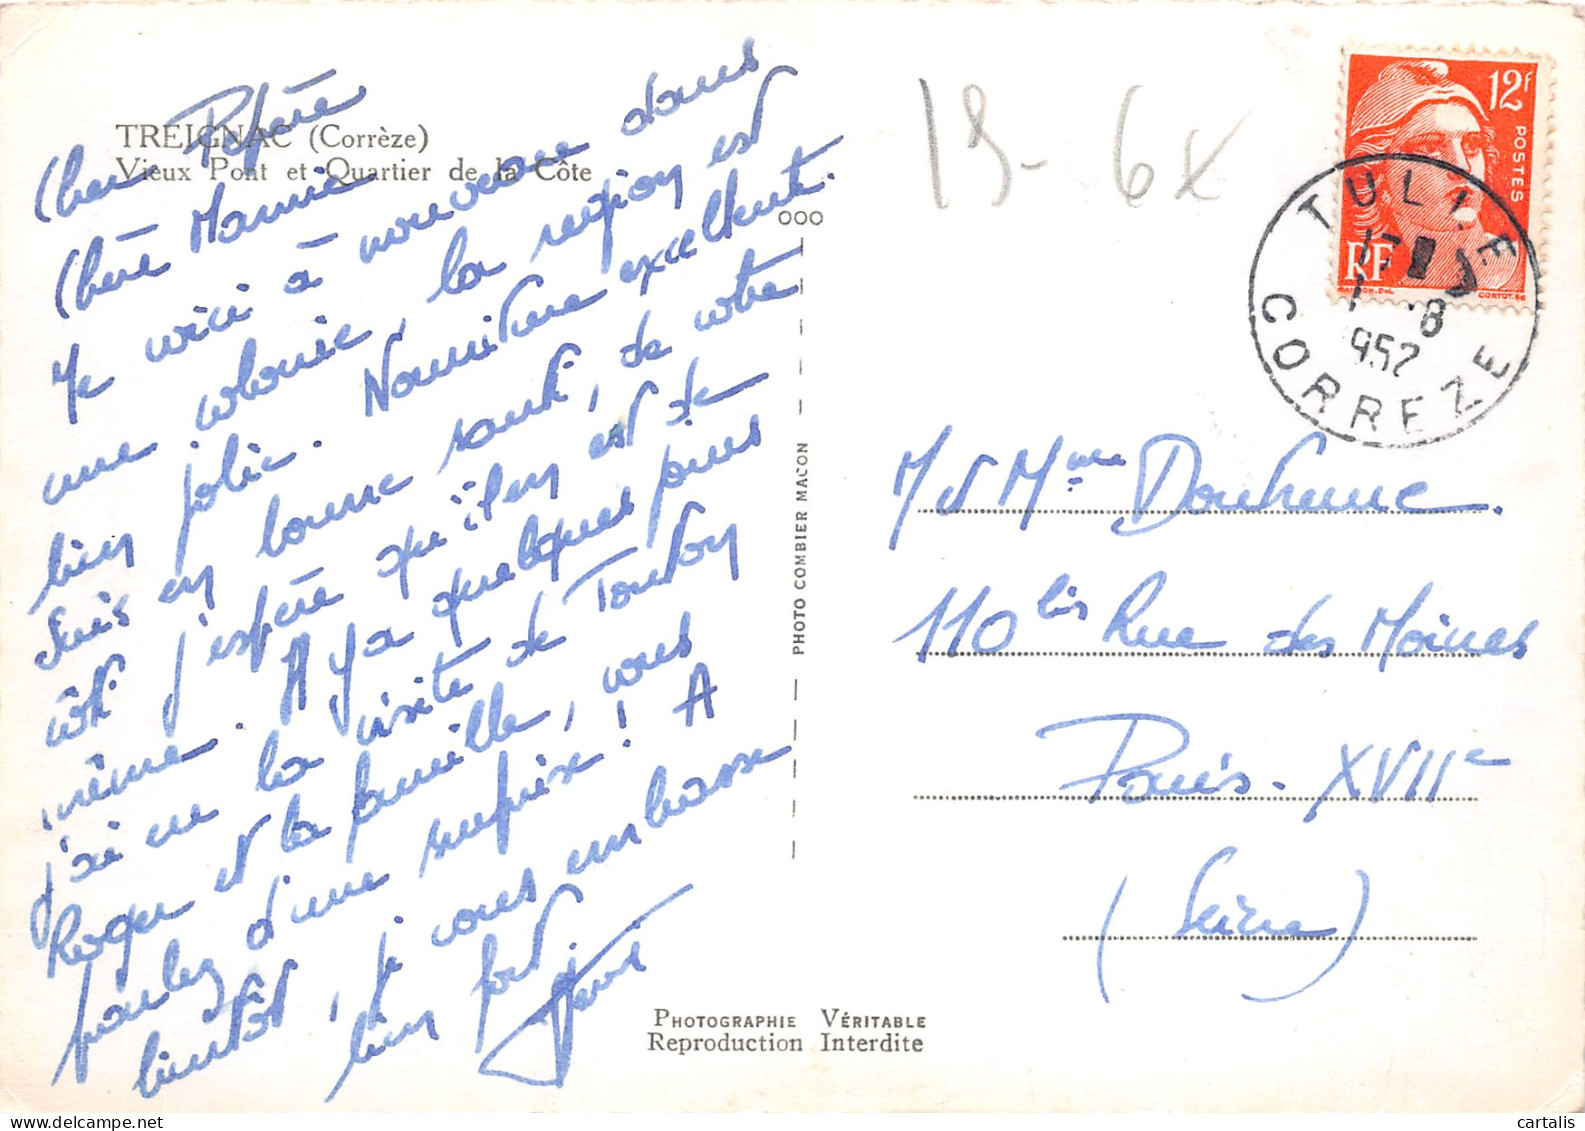 TREIGNAC (Corrèze)
Vieux Pont et Quartier de la Côte
Cher Pépère
Chère Mamie
Me voici à nouveau dans
une colonie, la région est
bien jolie. Nourriture excellente.
Suis en bonne santé, de votre
côté j'espère qu'il en est de
même. Il y a quelques jours
j'ai eu la visite de Tonton
Roger et la famille, vous
parlez d'une surprise! A
bientôt, je vous embrasse
bien fort
000
PHOTO COMBIER MACON
19- 6x
12F
POSTES
RF
CORTOT.SC
TULLE
17
1 -8
952
CORREZE
M et Mme
110 bis Rue des Moines
Paris - XVIIe
(Seine)
PHOTOGRAPHIE VÉRITABLE
Reproduction Interdite
cartalis